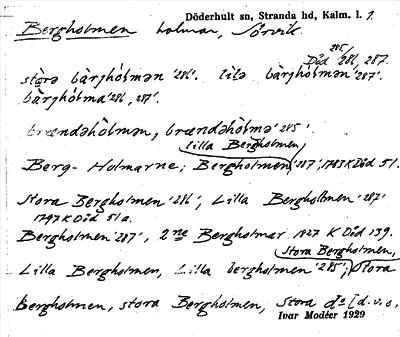 Döderhult sn, Stranda hd, Kalm. l. 1.
Bergholmen holmar, Sörvik.
285/ Död 286, 287.
stɷrə bàrjhólmən '286'. lilə bàrjhólmən '287'.
bàrjhólma '286, 287'.
brændəhòlmən, brændəhólmə '285'.
Lilla Bergholmen,
Berg-Holmarne; Bergholmen '287'; 1783 K Död 51.
Stora Bergholmen '286', Lilla Bergholmen '287'
1797 K Död 51a.
Bergholmen '287', 2ne Bergholmar 1827 K Död 139.
Stora Bergholmen,
Lilla Bergholmen, Lilla bergholmen '285'; Stora
bergholmen, stora Bergholmen, Stora do [d.v.s.
Ivar Modéer 1929